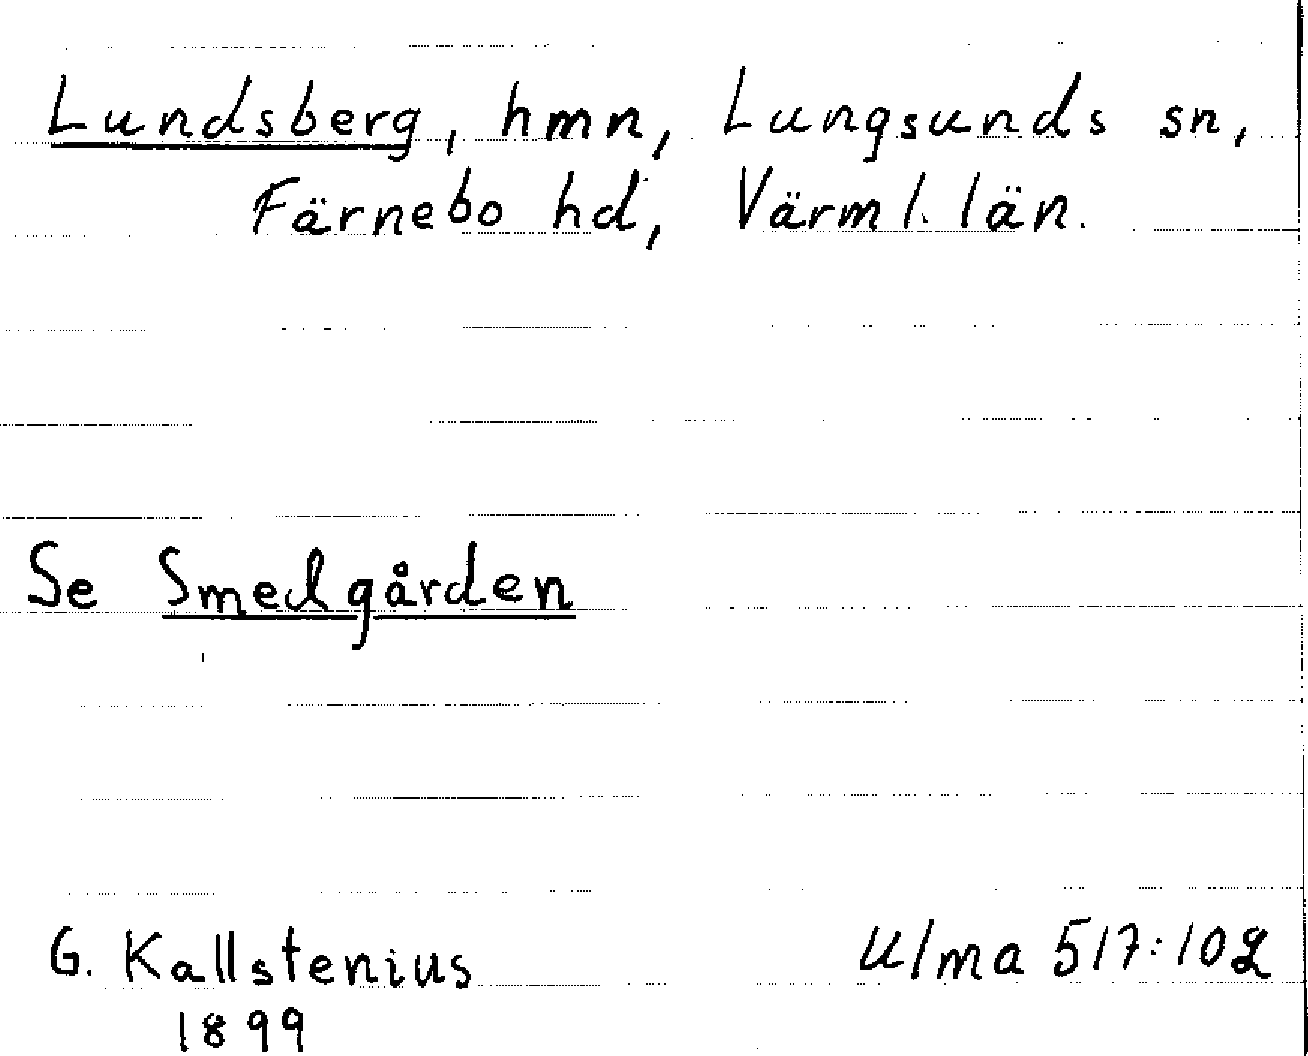 Lundsberg, hmn, Lungsunds sn,
Färnebo hd, Värml. län.
Se Smedgården
G. Kallstenius Ulma 517:102
1899